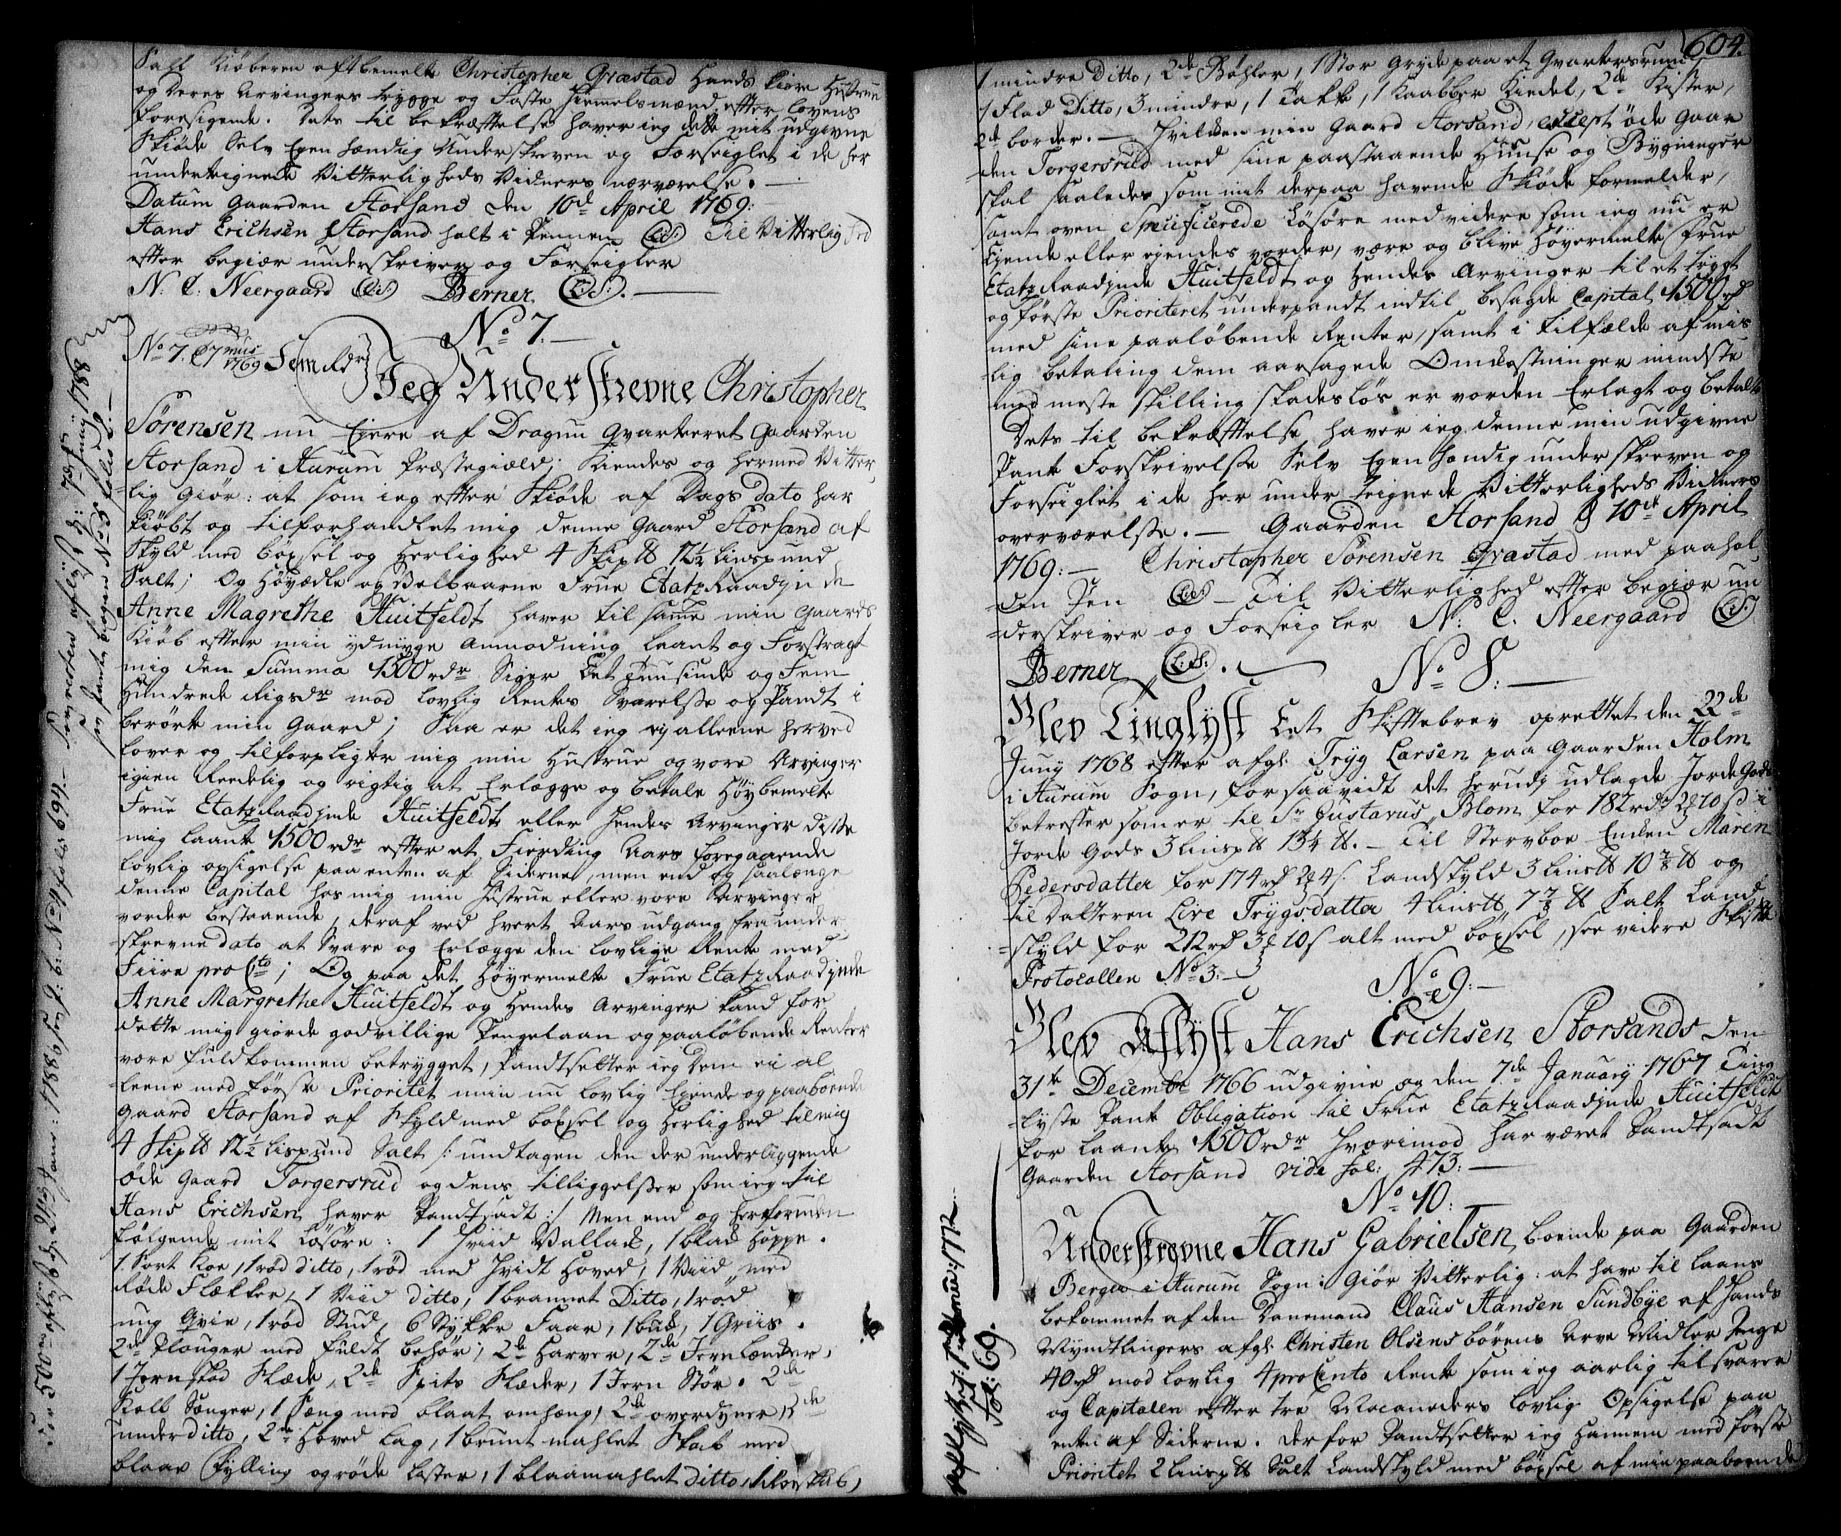 Salt Kiøberen oftbemelte Christopher Græstad Hands kiere Hustrue
og deres Arvingers trygge og Faste Hiemelsmænd, efter lovens
foresigende. Dets til bekræftelse haver ieg dette mit udgivne
Skiøde Selv Egen hændig Underskreven og Forseiglet i de her
undertegnede Vitterligheds Vidners nærværelse. —
Datum Gaarden Storsand den 10de April 1769:
Hans Erichsen Storsand holt i Pennen (L.S.) Til Vitterlighed
efter begiær underskriver og Forseigler
N. C. Neergaard (L.S.) Berner (L.S.). —
No 7. —
No 7. 1769
Jeg Underskrevne Christopher
Sørensen nu Ejere af Dragun Qvarteret Gaarden
Storsand i Hurum Præstegiæld; Kiendes og hermed Vitter
lig Giør: at som ieg efter Skiøde af Dags dato har
kiøbt og tilforhandlet mig denne Gaard Storsand af
Skyld med bøxsel og herlighed 4 Skip℔ 12½ Linspund
Salt; Og Høyædle og Velbaarne Frue EtatzRaadinde
Anne Magrethe Huitfeldt haver til samme min Gaards
Kiøb efter min ydmyge Anmodning laant og Forstragt
mig den Summa 1500 rdr Siger Eet Tuusinde og Fem
Hundrede Rigsdr mod lovlig Rentes Svarelse og Pandt i
berørte min Gaard; Saa er det ieg ej alleene herved
lover og tilforpligter mig min Hustrue og vore Arvinger
igien Reedelig og rigtig at Erlægge og betale Høybemelte
Frue EtatzRaadinde Huitfeldt eller Hendes Arvinger disse
mig laante 1500 rdr efter et Fierding Aars foregaaende
lovlig opsigelse paa enten af Siderne, men end og saalænge
denne Capital hos mig min Hustrue eller vore Arvinger
vorder bestaaende, deraf ved hvert Aars udgang fra under
skrevne dato at Svare og Erlægge den lovlige Rente med
Fiire pro Cto; Og paa det Høyermelte Frue EtatzRaadinde
Anne Margrethe Huitfeldt og Hendes Arvinger kand for
dette mig giorde godvillige Pengelaan og paaløbende Renter
være fuldkommen betrygget, Pandtsetter ieg Dem ei al
leene med første Prioritet min nu lovlig Eyende og paaboende
Gaard Storsand af Skyld med bøxsel og Herlighed til mig
4 Skip℔ 12½ Lispund Salt /: undtagen den der underliggende
øde Gaard Torgersrud og dens tilliggelser som ieg til
Hans Erichsen haver Pandtsadt :/ Men end og herforuden
følgende mit Løsøre: 1 Hviid Vallack, 1 blak Hoppe.
1 Sort Koe, 1 rød ditto, 1 rød med Hvidt Hoved, 1 Viid med
Røde Flækker, 1 Viid ditto, 1 brannet Ditto, 1 rød
ung Qvie, 1 rød Stud, 6 Stykker Faar, 1 buk, 1 Griis.
2de Plouger med fuldt behør; 2de Harver, 2de Jern Lænker,
1 Jern skod Slæde, 2de Spits Slæder, 1 Jern Stør. 2de
Senger, 1 Seng med blaat omhæng, 2de overdyner, 2de
under ditto, 2de Hoved lag, 1 brunt mahlet Skab med
blaae Fylling og røde lister, 1 blaamahlet ditto,
604.
1 mindre Ditto, 2de Bøhler, 1 Stor Gryde paa et Qvarters rum
1 Flad Ditto, 3 mindre, 1 Takke, 1 Kaabber Kiedel, 2de Kister,
2de border. — Hvilken min Gaard Storsand, except øde Gaar
den Torgersrud med sine paastaaende Huuse og Bygninger
skal saaledes som mit derpaa havende Skiøde formelder,
samt oven Specificerede Løsøre med videre som ieg nu er
Eyende eller ejendes vorder, være og blive Høyermelte Frue
EtatzRaadinde Huitfeldt og Hendes Arvinger til et trygt
og første Prioriteret underpandt indtil besagde Capital 1500 rd
med sine paaløbende Renter, samt i tilfælde af mis
lig betaling dem aarsagede Omkostninger mindste
med meste skilling skadesløs er vorden Erlagt og betalt
Dets til bekræftelse haver ieg denne min udgivne
Pante Forskrivelse Selv Egen hændig underskreven og
Forseiglet i de her under tegnede Vitterligheds Vidners
overværelse. — Gaarden Storsand d 10de April
1769: — Christopher Sørensen Græstad med paahol
den Pen (L.S.) — Til Vitterlighed efter begiær un
derskriver og Forseigler N: C. Neergaard (L.S.)
Berner (L.S.). —
No 8: —
Blev Tinglyst Eet Skiftebrev oprettet den 22de
Juny 1768 efter afgl: Tryg Larsen paa Gaarden Holm
i Hurum Sogn, forsaavidt det herudj udlagde Jorde Gods
betreffer som er til Sr Gustavus Blom for 182 rdr 2 10 s i
Jorde Gods 3 Linsp℔ 13¼ ℔. — Til Stervboe Enken Maren
Pedersdatter for 174 rd 2 4 s. Landskyld 3 Lins℔ 10⅞ ℔ og
til datteren Live Trygsdatter 4 Lins℔ 7⅞ ℔ Salt Land
skyld for 212 rd 3 10 s alt med bøxsel, see videre Skifte
Protocollen No 3: —
No 9: —
Blev Aflyst Hans Erichsen Storsands den
31te Decembr 1766 udgivne og den 7de January 1767 Ting
lyste Pante Obligation til Frue EtatzRaadinde Huitfeldt
for laante 1500 rdr Hvorimod har været Pandtsadt
Gaarden Storsand vide fol: 473: —
No 10:
Underskrevne Hans Gabrielsen boende paa Gaarden
Berger i Hurum Sogn: Giør Vitterlig: at have til laans
bekommet af den Danemand Claus Hansen Sundbye af Hands
Myndtlingers afgl: Christen Olsens børens Arve Midler Penge
40 rd mod lovlig 4 pro Cento Rente som ieg aarlig tilsvarer
og Capitalen efter tre Maaneders lovlig Opsigelse paa
enten af Siderne. Derfor Pandtsetter ieg Hannem med første
Prioritet 2 Linsp℔ Salt Landskyld med bøxsel af min paaboende
fol: 69.